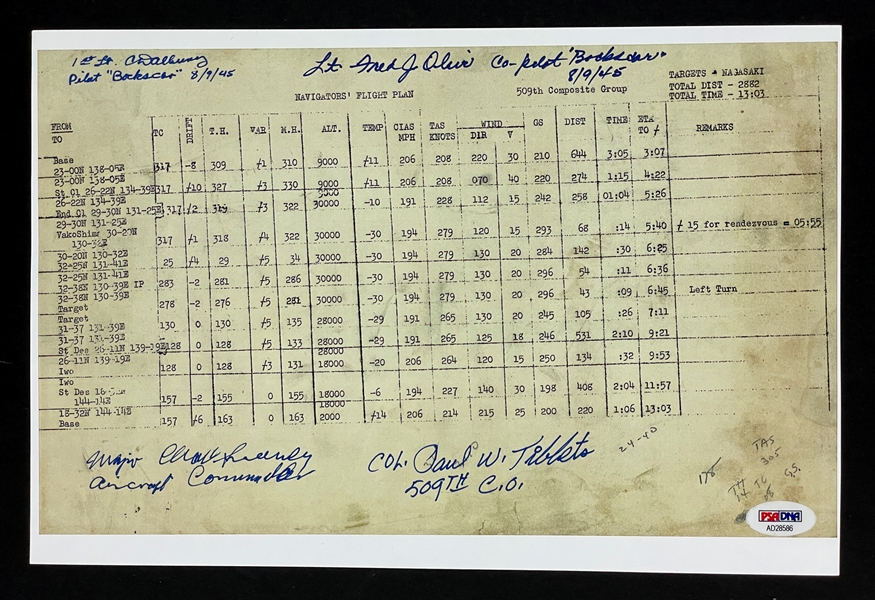 1st Lt. C D Albury
Pilot "Bockscar" 8/9/45
Lt Fred J Olivi Co-pilot "Bockscar"
8/9/45
TARGETS - NAGASAKI
TOTAL DIST - 2882
TOTAL TIME - 13:03
NAVIGATORS' FLIGHT PLAN 509th Composite Group
FROM
TO TC DRIFT T.H. VAR M.H. ALT. TEMP CIAS MPH TAS KNOTS WIND DIR V GS DIST TIME ETA TO REMARKS
Base
23-00N 138-05E 317 -8 309 /1 310 9000 /11 206 208 220 30 210 644 3:05 3:07
23-00N 138-05E
St Cl 26-22N 134-39E 317 /10 327 /3 330 9000 /11 206 208 070 40 220 274 1:15 4:22
26-22N 134-39E
End Cl 29-30N 131-25E 317 /2 319 /3 322 30000 -10 191 228 112 15 242 258 01:04 5:26
29-30N 131-25E
YakoShima 30-20N
130-32E 317 /1 318 /4 322 30000 -30 194 279 120 15 293 68 :14 5:40 / 15 for rendezvous = 05:55
30-20N 130-32E
32-25N 131-41E 25 /4 29 /5 34 30000 -30 194 279 130 20 284 142 :30 6:25
32-25N 131-41E
32-38N 130-39E IP 283 -2 281 /5 286 30000 -30 194 279 130 20 296 54 :11 6:36
32-38N 130-39E
Target 278 -2 276 /5 281 30000 -30 194 279 130 20 296 43 :09 6:45 Left Turn
Target
31-37 131-39E 130 0 130 /5 135 28000 -29 191 265 130 20 245 105 :26 7:11
31-37 131-39E
St Des 26-11N 139-19E 128 0 128 /5 133 28000 -29 191 265 125 18 246 531 2:10 9:21
28000
26-11N 139-19E
Iwo 128 0 128 /3 131 18000 -20 206 264 120 15 250 134 :32 9:53
Iwo
St Des
144-14E 157 -2 155 0 155 18000 -6 194 227 140 30 198 408 2:04 11:57
18000
18-32N 144-14E
Base 157 /6 163 0 163 2000 /14 206 214 215 25 200 220 1:06 13:03
Major Charles Sweeney
Aircraft Commander
COL. Paul W. Tibbets
509TH C.O.
24-40
TAS
305
G.S.
TH
TC
PSA/DNA
AD28586